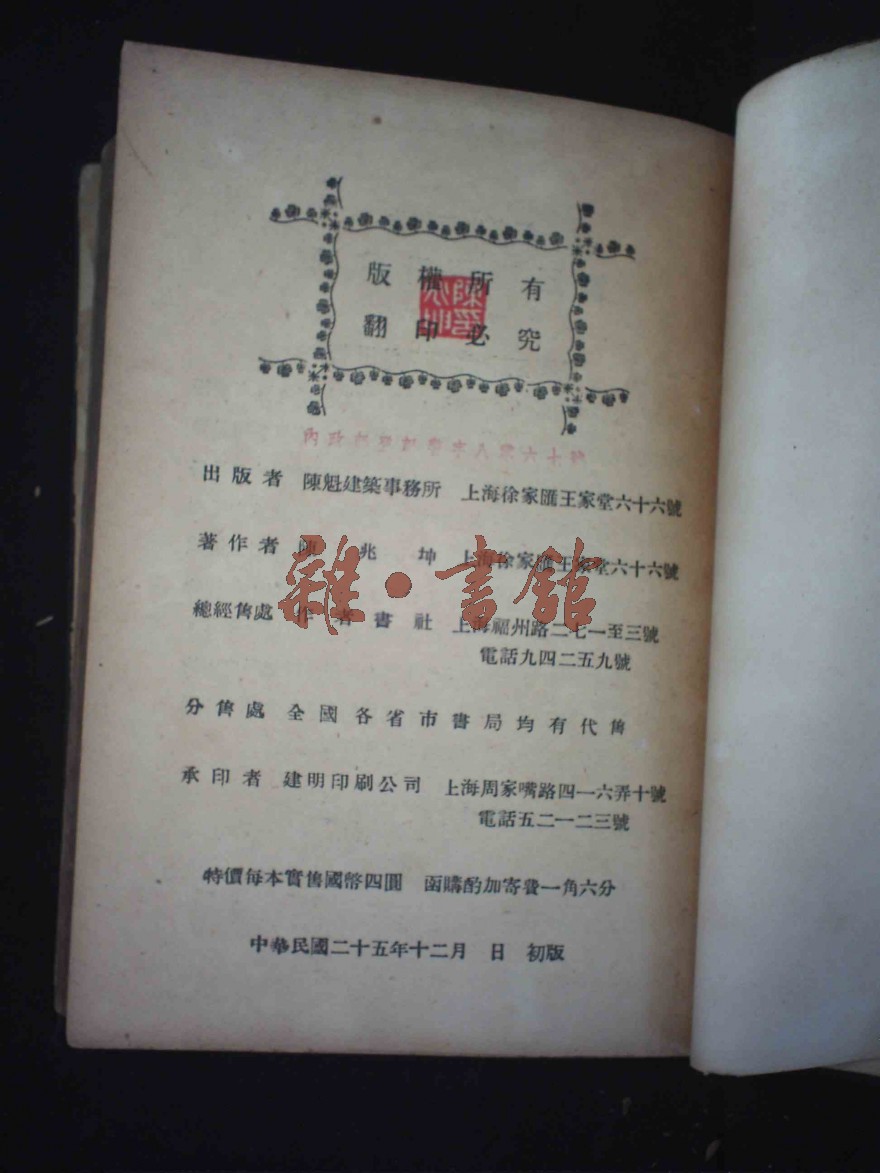 版權所有
翻印必究
出版者 陳魁建築事務所 上海徐家匯王家堂六十六號
著作者 陳兆坤 上海徐家匯王家堂六十六號
總經售處 作者書社 上海福州路二七一至三號
電話九四二五九號
分售處 全國各省市書局均有代售
承印者 建明印刷公司 上海周家嘴路四一六弄十號
電話五二一二三號
特價每本實售國幣四圓 函購酌加寄費一角六分
中華民國二十五年十二月 日 初版
雜·書館